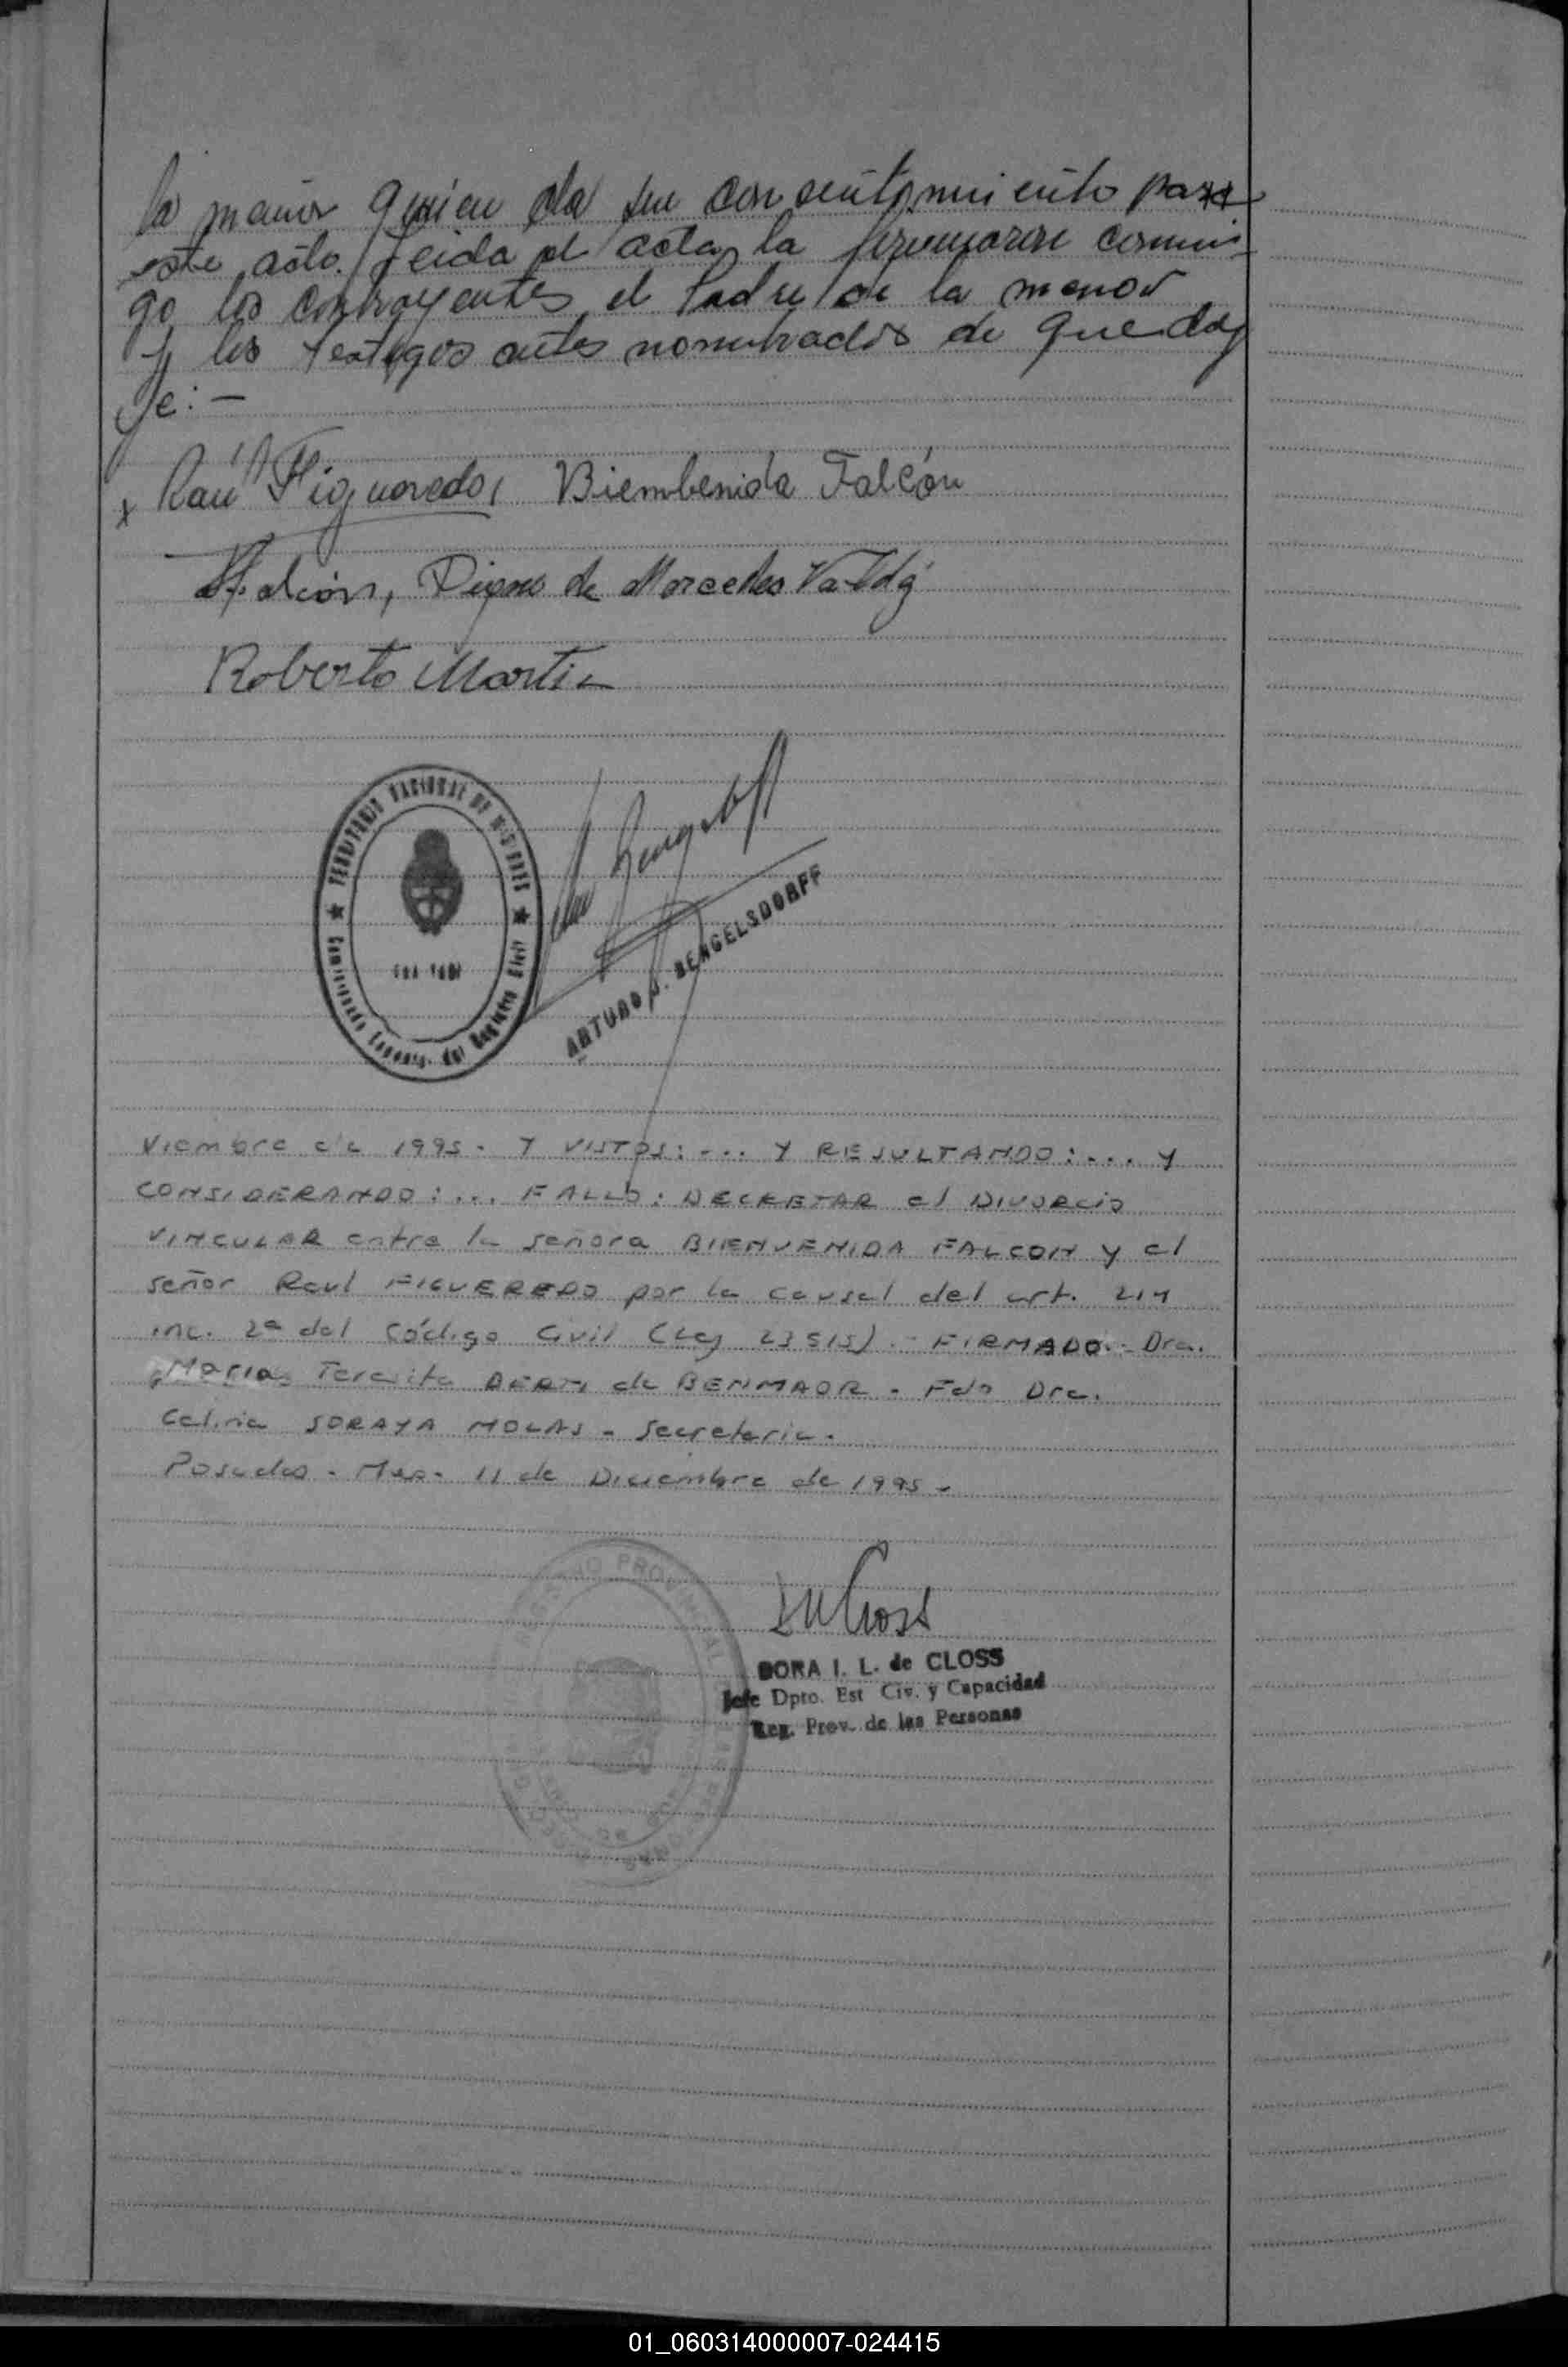 la menor quien da su consentimiento para
este acto. Leida el acta, la firmaron conmi-
go los contrayentes el Padre de la menor
y los testigos antes nombrados de que doy
fe: —
x Raul Figueredo, Biembenida Falcón
Falcón, de Mercedes
Roberto Martin
TERRITORIO NACIONAL DE MISIONES
del Registro Civil
ARTURO J. BENGELSDORFF
viembre de 1995. Y VISTOS: ... Y RESULTANDO: ... Y
CONSIDERANDO: ... FALLO: DECRETAR el DIVORCIO
VINCULAR entre la señora BIENVENIDA FALCON y el
señor Raul FIGUEREDO por la causal del art. 214
inc. 2º del Código Civil (Ley 23515) - FIRMADO - Dra.
Maria Teresita de BENMAOR - Fdo Dra.
Celina SORAYA MOLAS - Secretaria.
Posadas - Mnes - 11 de Diciembre de 1995 -
REGISTRO PROVINCIAL DE LAS PERSONAS
DORA I. L. de CLOSS
Jefe Dpto. Est Civ. y Capacidad
Reg. Prov. de las Personas
01_060314000007-024415